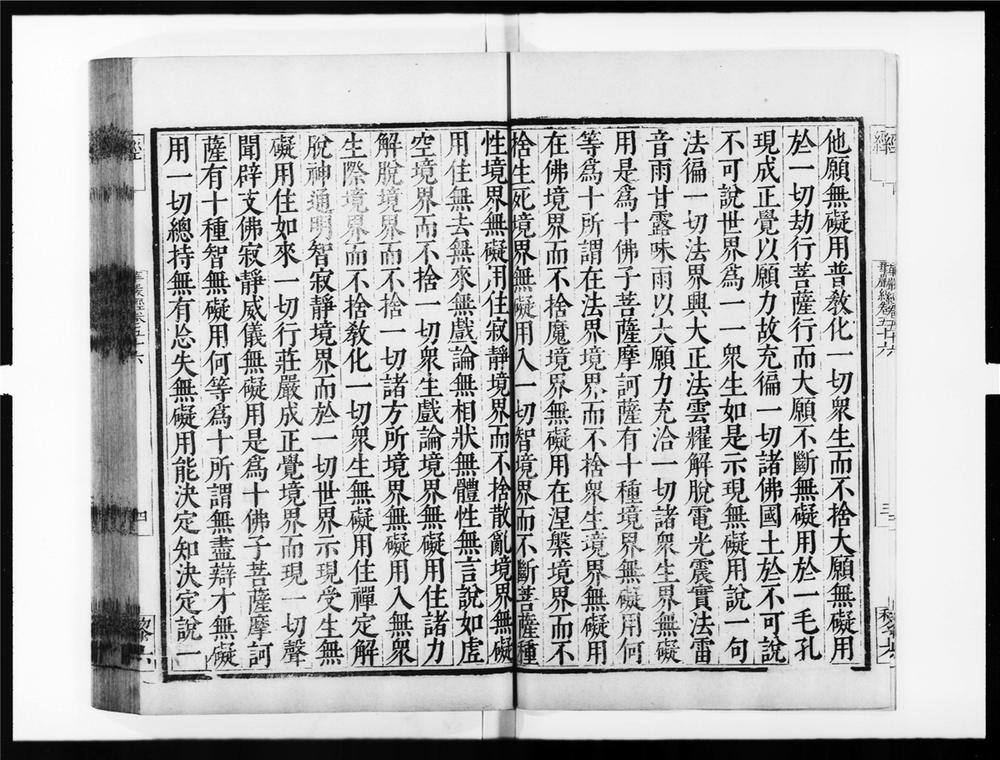 他願無礙用普敎化一切衆生而不捨大願無礙用
於一切劫行菩薩行而大願不斷無礙用於一毛孔
現成正覺以願力故充徧一切諸佛國土於不可說
不可說世界爲一一衆生如是示現無礙用說一句
法徧一切法界興大正法雲耀解脫電光震實法雷
音雨甘露味雨以大願力充洽一切諸衆生界無礙
用是爲十佛子菩薩摩訶薩有十種境界無礙用何
等爲十所謂在法界境界而不捨衆生境界無礙用
在佛境界而不捨魔境界無礙用在涅槃境界而不
捨生死境界無礙用入一切智境界而不斷菩薩種
性境界無礙用住寂靜境界而不捨散亂境界無礙
用住無去無來無戲論無相狀無體性無言說如虛
空境界而不捨一切衆生戲論境界無礙用住諸力
解脫境界而不捨一切諸方所境界無礙用入無衆
生際境界而不捨敎化一切衆生無礙用住禪定解
脫神通明智寂靜境界而於一切世界示現受生無
礙用住如來一切行莊嚴成正覺境界而現一切聲
聞辟支佛寂靜威儀無礙用是爲十佛子菩薩摩訶
薩有十種智無礙用何等爲十所謂無盡辯才無礙
用一切總持無有忘失無礙用能決定知決定說一
經
華嚴經卷五十六
四